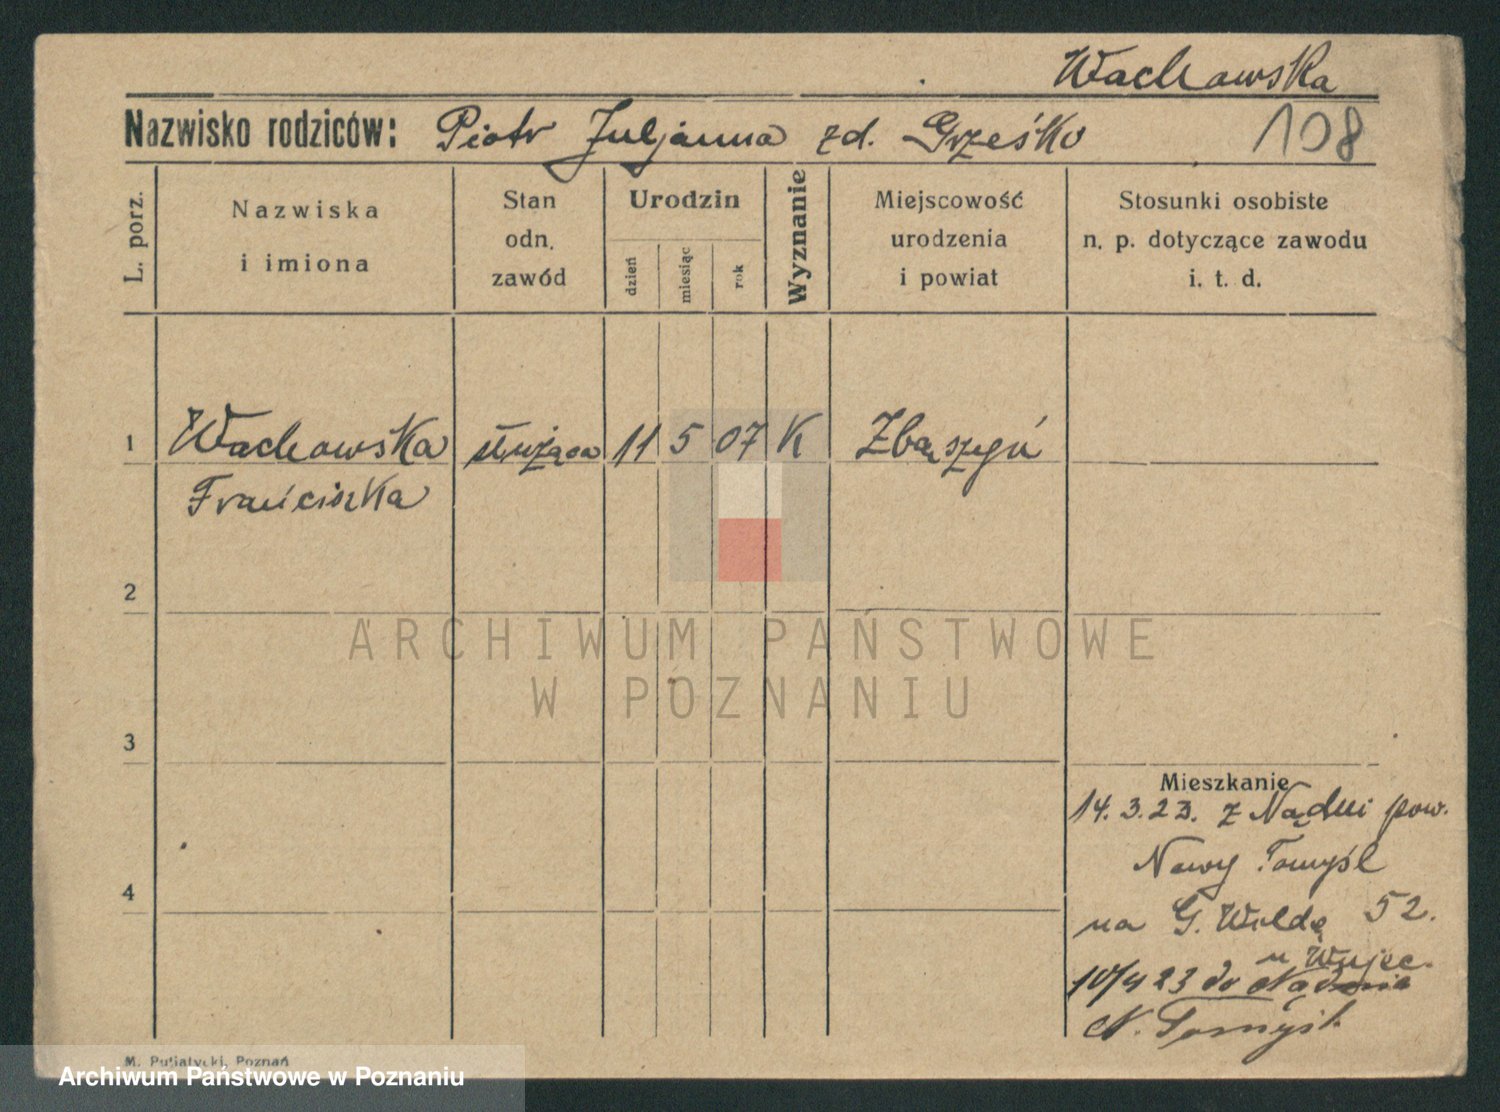 Wachowska
Nazwisko rodziców: Piotr Juljanna zd. Grześko 108
L. porz.
Nazwiska i imiona
Stan odn. zawód
Urodzin
dzień
miesiąc
rok
Wyznanie
Miejscowość urodzenia i powiat
Stosunki osobiste n. p. dotyczące zawodu i. t. d.
1 Wachowska służąca 11 5 07 K Zbąszyń
Franciszka
2
ARCHIWUM PAŃSTWOWE
W POZNANIU
3
4
Mieszkanie
14.3.23. z Nądni pow.
Nowy Tomyśl
na G. Wildę 52.
u Wujec.
10/4 23 do Nądnia
N. Tomyśl.
M. Putiatycki, Poznań
Archiwum Państwowe w Poznaniu